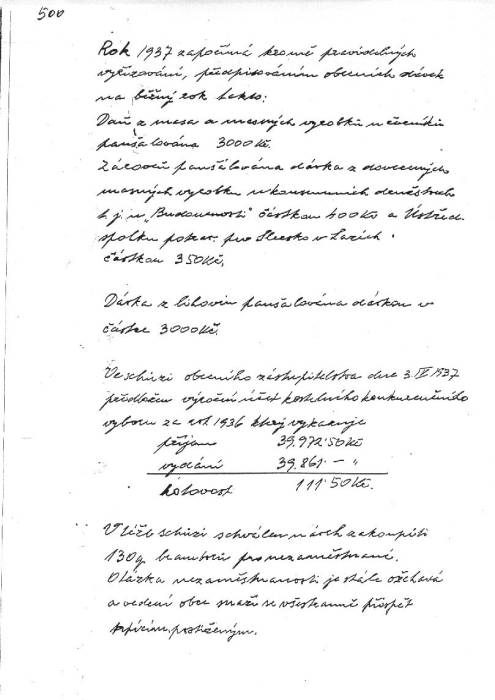 500
Rok 1937 započíná kromě pravidelných
vyřizování, předpisováním obecních dávek
na běžný rok takto:
Daň z masa a masných výrobků u řezníků
paušalována 3000Kč.
Zároveň paušálována dávka z dovezených
masných výrobků v konsumních
t.j. u „Budoucnosti" částkou 400Kč a Ústřed.
spolku potrav. pro Slezsko v Lazích
částkou 350Kč.
Dávka z lihovin paušalována dávkou v
částce 3000Kč.
Ve schůzi obecního zastupitelstva dne 3.IV.1937
předložen výroční účet kostelního konkurenčního
výboru za rok 1936 který vykazuje
příjem 39.972.50Kč
vydání 39.861.– "
hotovost 111.50Kč.
V téže schůzi schválen návrh zakoupiti
130q. brambor pro nezaměstnané.
Otázka nezaměstnanosti je stále ožehavá
a vedení obce snaží se všestranně přispět
trpícím, postiženým.